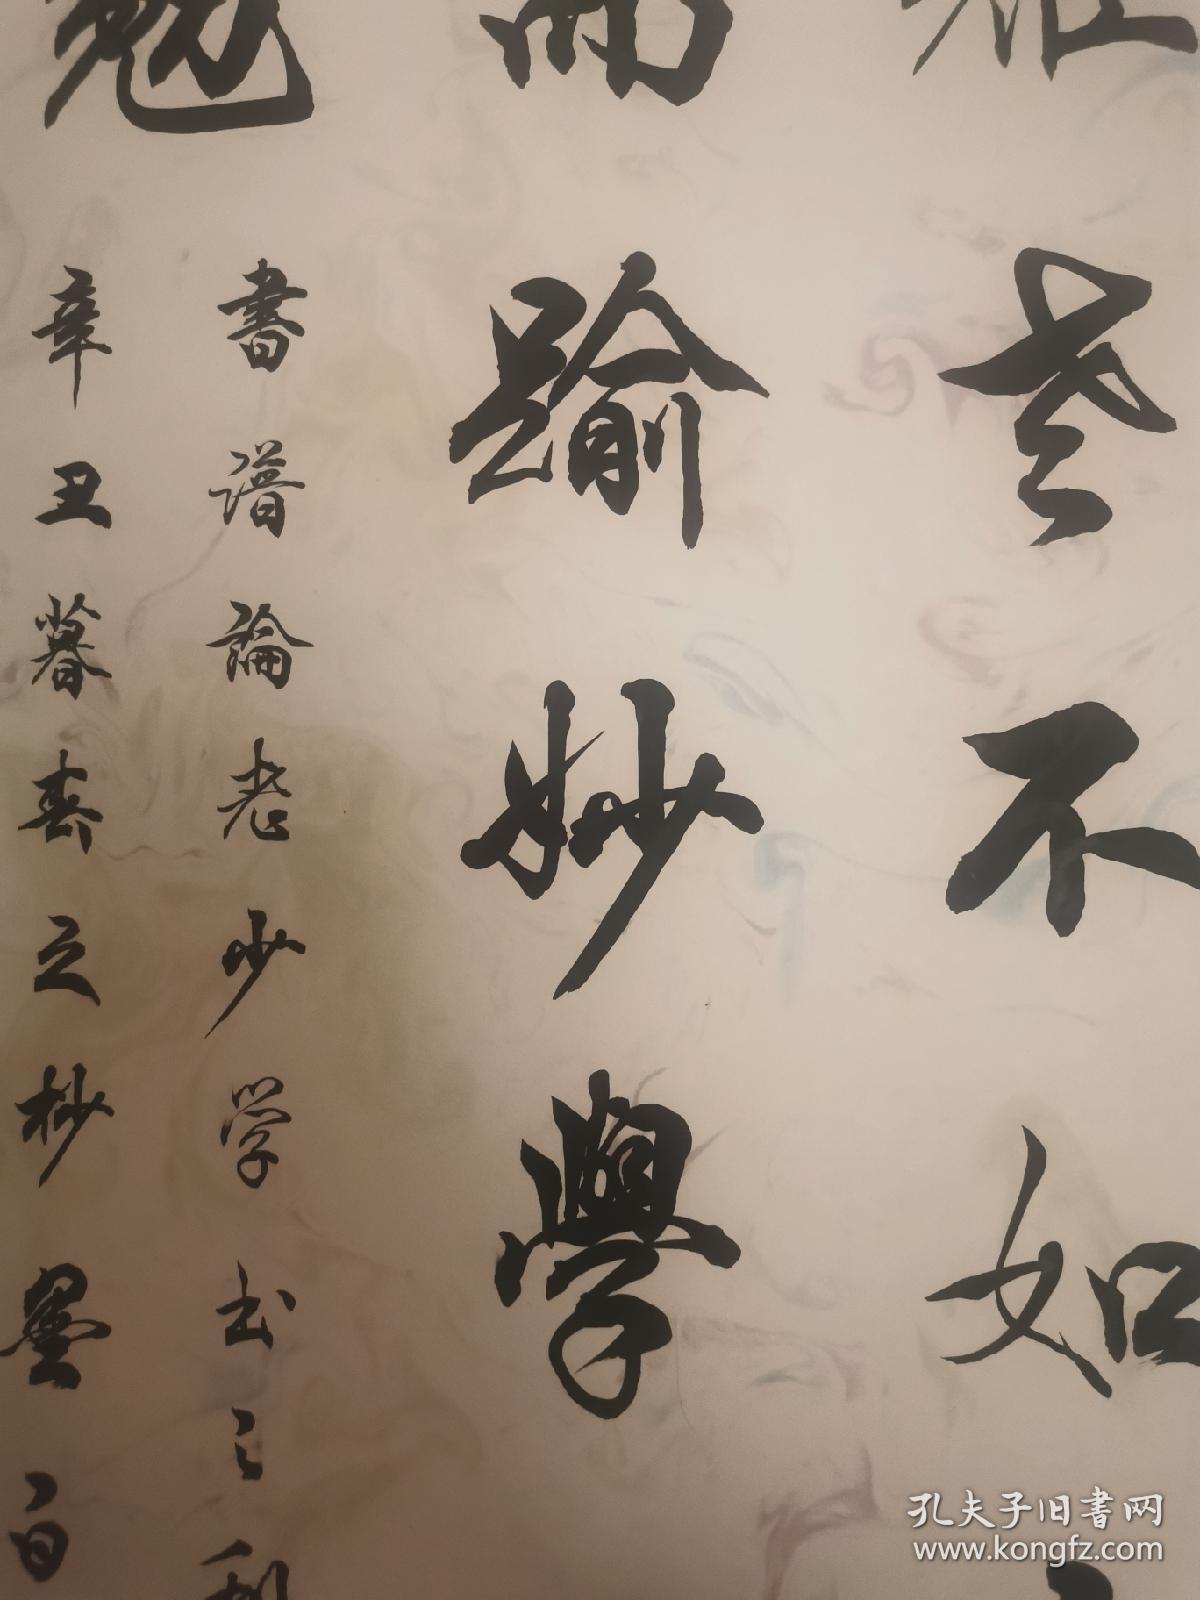 老不如
而踰妙學
勉
書譜論老少学书之利
辛丑暮春之杪墨百
孔夫子旧書网
www.kongfz.com